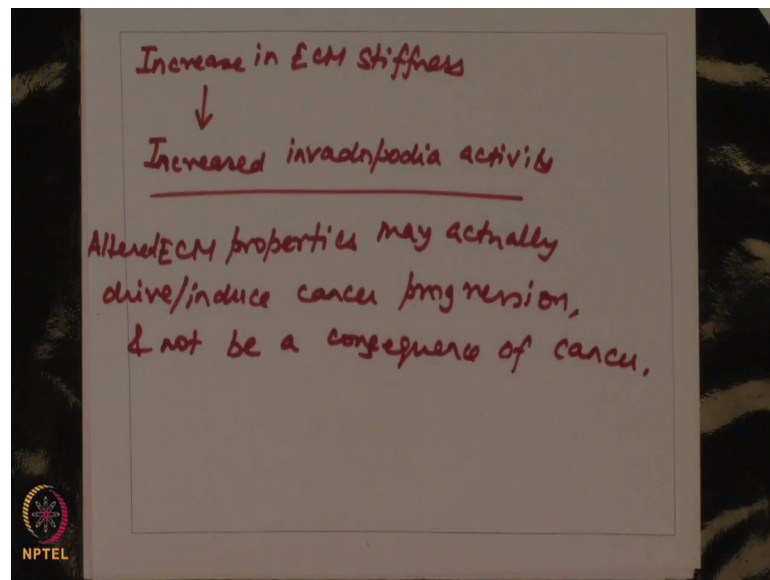 Increase in ECM stiffness
↓
Increased invadopodia activity
Altered ECM properties may actually
drive/induce cancer progression,
& not be a consequence of cancer.
NPTEL